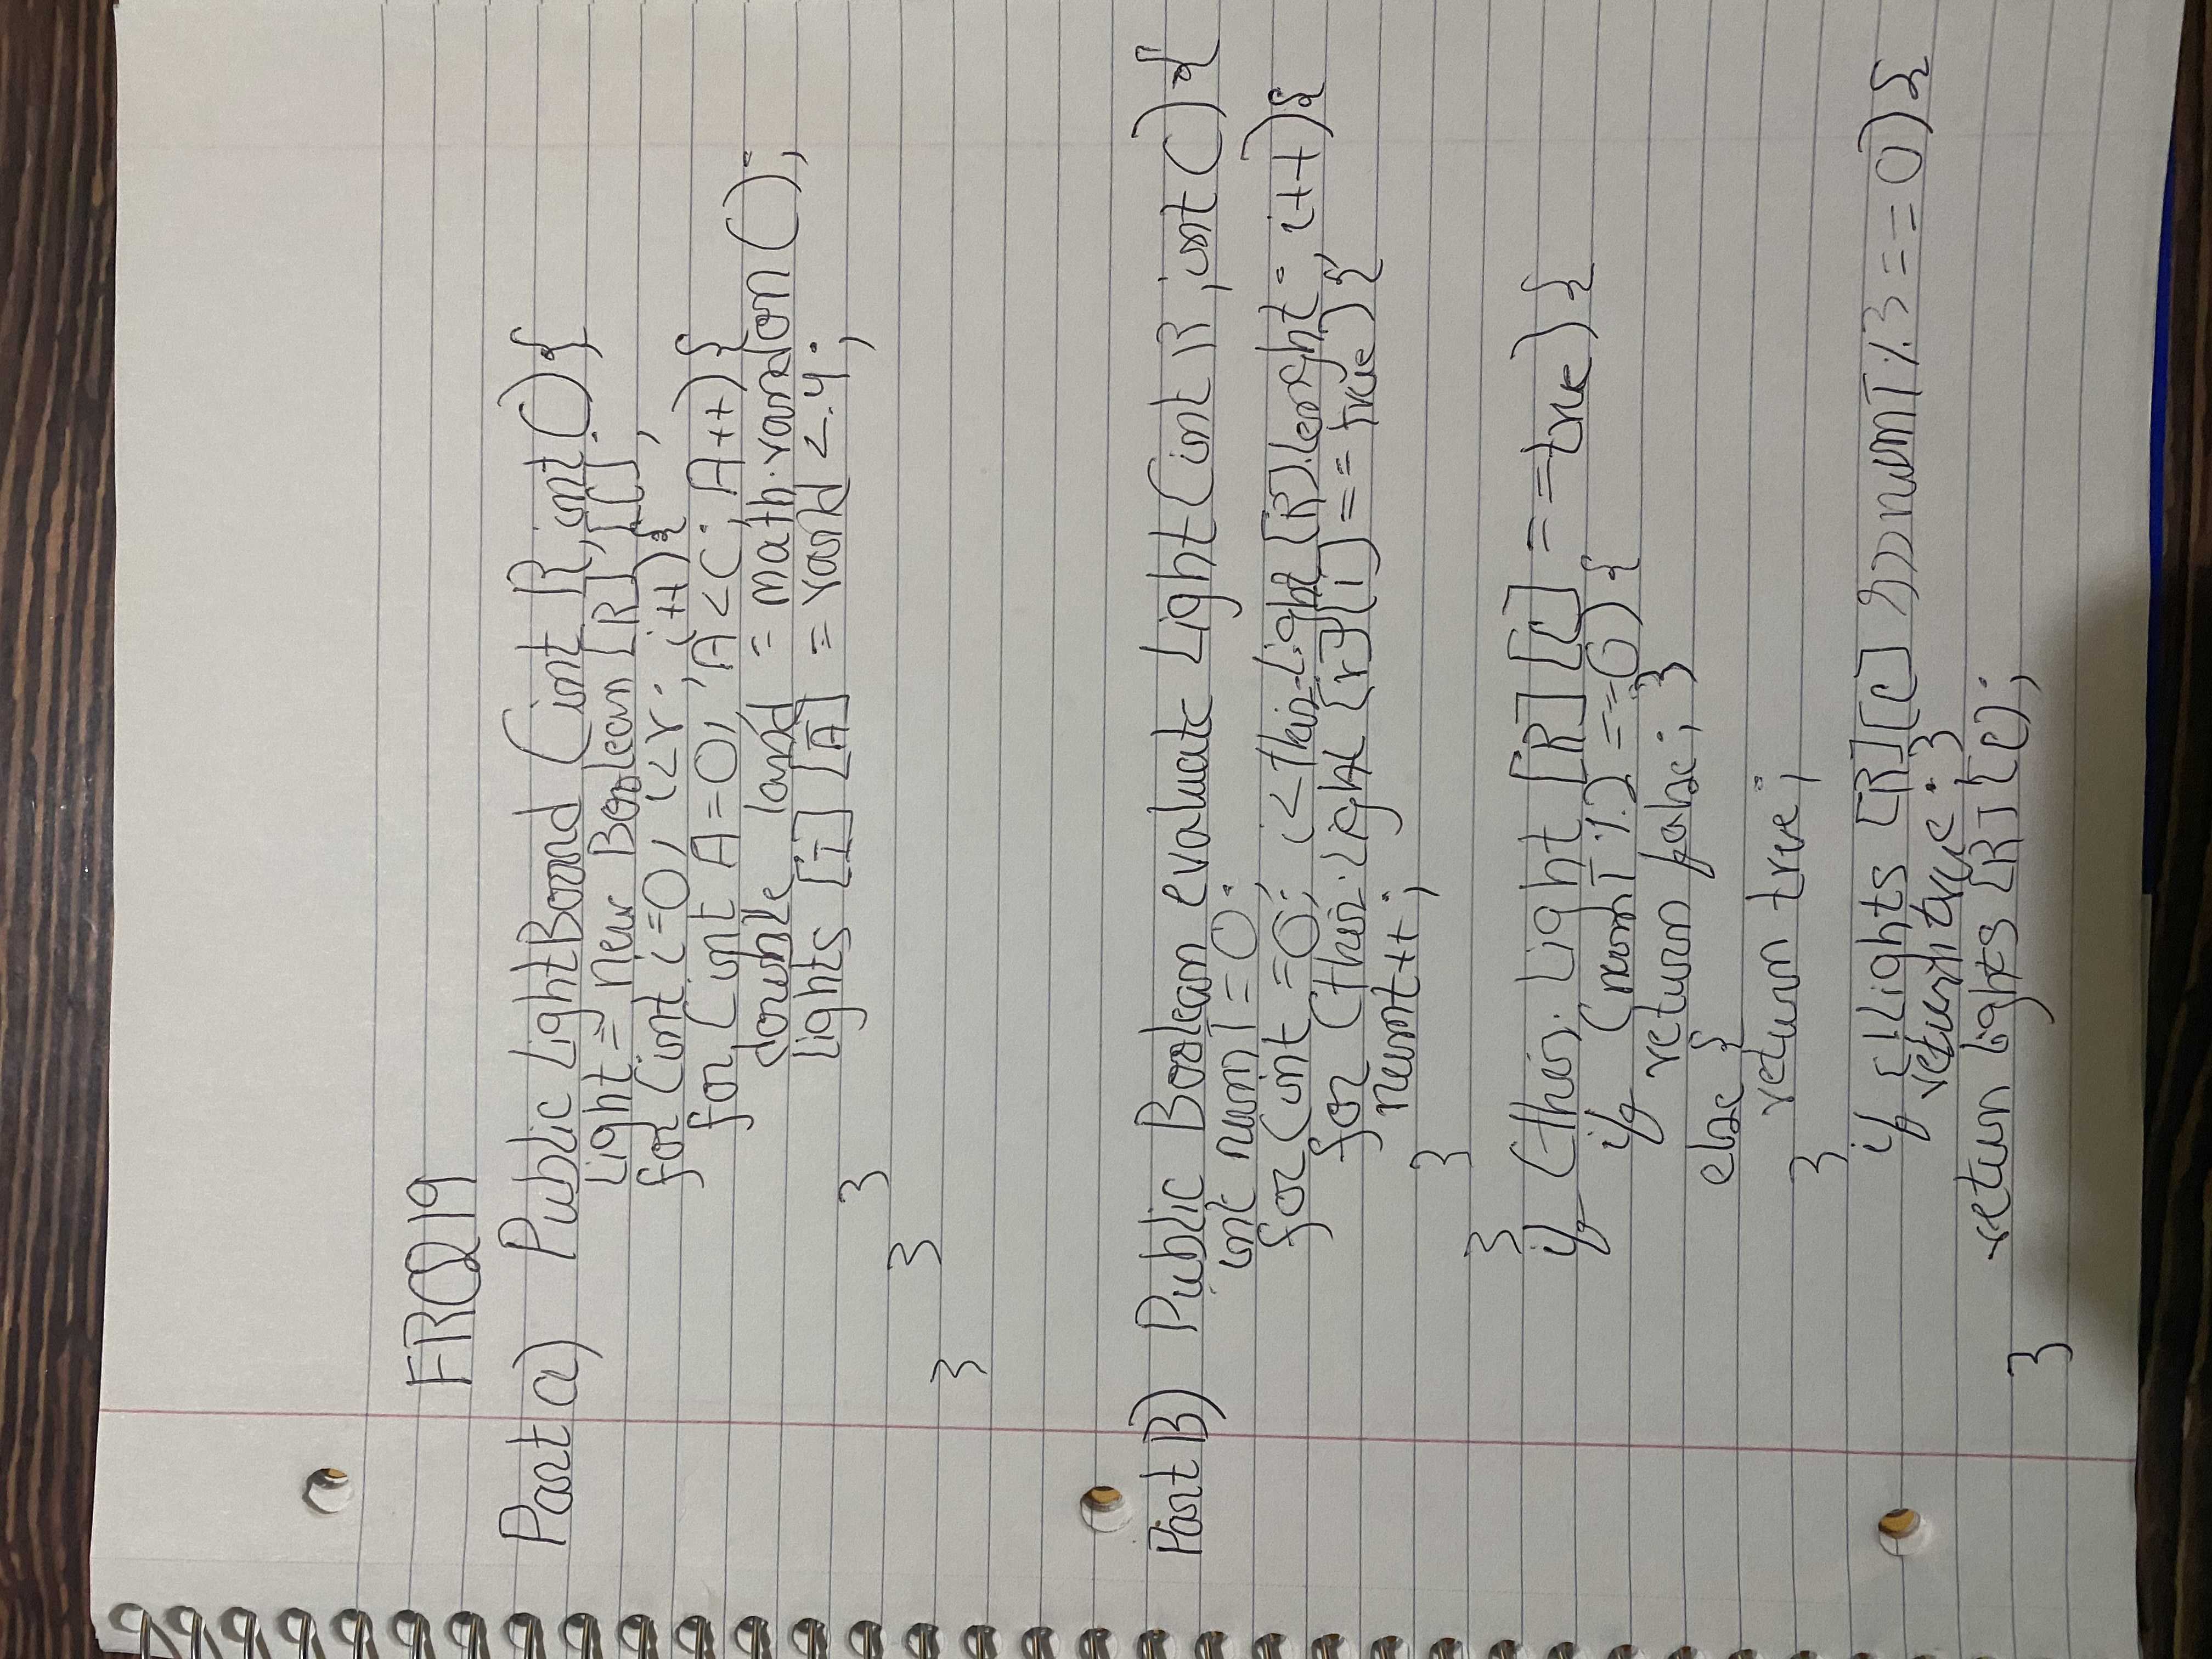 FRQ19
Part a) Public LightBoard (int R, int C){
Light = new Boolean [R] [C];
for (int i=0; i<r; i++){
for (int A=0; A<C; A++){
double land = math.random();
lights [i] [A] = rand <.4;
}
}
}
Part B) Public Boolean evaluate Light (int R, int C){
int numT=0;
for (int =0; i<this.light [R].lenght; i++){
for (this.light [r][i]==true){
numt++;
}
}
if (this.Light [R][C] ==true){
if (numT%2==0){
return false; }
else {
return true;
}
if (!Lights [R][C] && numT%3==0){
return true; }
return lights [R][C];
}